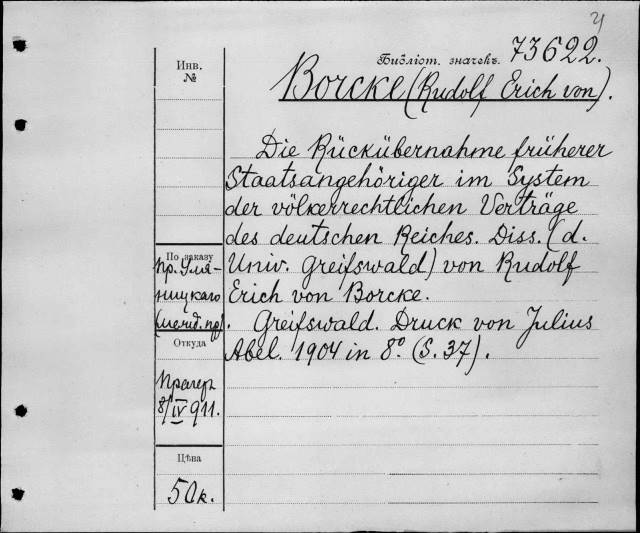 Библіот. значекъ. 73622.
Инв.
№
Borcke (Rudolf Erich von).
Die Rückübernahme früherer
Staatsangehöriger im System
der völkerrechtlichen Verträge
des deutschen Reiches. Diss. (d.
Univ. Greifswald) von Rudolf
Erich von Borcke.
Greifswald. Druck von Julius
Abel. 1904 in 8.° (S. 37).
По заказу
пр. Уля-
ницкаго
Откуда
Прагеръ
8/IV 911.
Цѣна
50к.